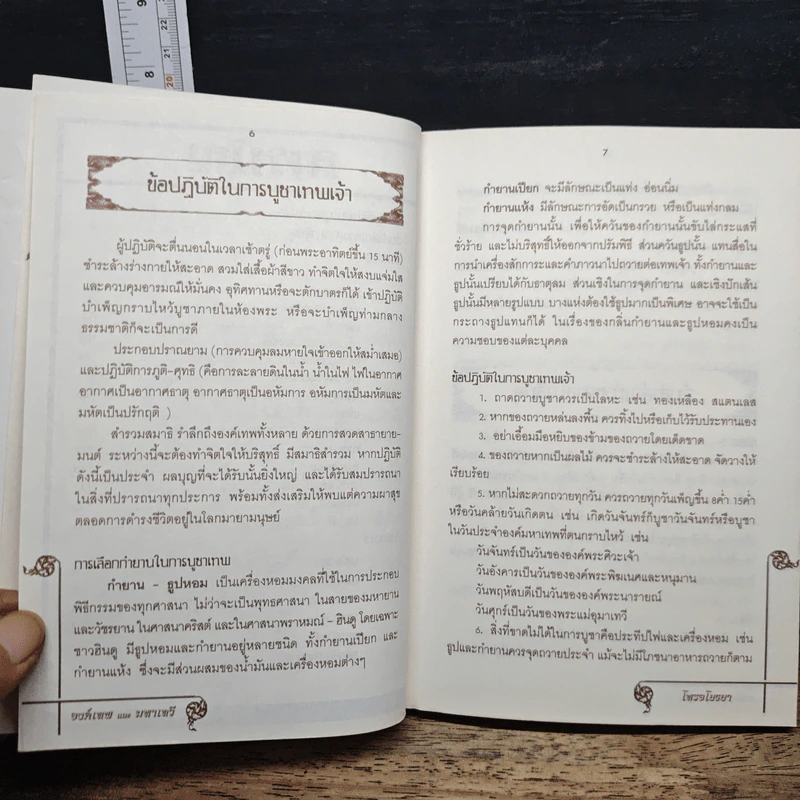 9
8
22
21
20
6
ข้อปฏิบัติในการบูชาเทพเจ้า
ผู้ปฏิบัติจะตื่นนอนในเวลาเช้าตรู่ (ก่อนพระอาทิตย์ขึ้น 15 นาที)
ชำระล้างร่างกายให้สะอาด สวมใส่เสื้อผ้าสีขาว ทำจิตใจให้สงบแจ่มใส
และควบคุมอารมณ์ให้มั่นคง อุทิศทานหรือจะตักบาตรก็ได้ เข้าปฏิบัติ
บำเพ็ญกราบไหว้บูชาภายในห้องพระ หรือจะบำเพ็ญท่ามกลาง
ธรรมชาติก็จะเป็นการดี
ประกอบปราณยาม (การควบคุมลมหายใจเข้าออกให้สม่ำเสมอ)
และปฏิบัติการภูติ-ศุทธิ (คือการละลายดินในน้ำ น้ำในไฟ ไฟในอากาศ
อากาศเป็นอากาศธาตุ อากาศธาตุเป็นอหังการ อหังการเป็นมหัตและ
มหัตเป็นปรักฤติ )
สำรวมสมาธิ รำลึกถึงองค์เทพทั้งหลาย ด้วยการสวดสาธยาย-
มนต์ ระหว่างนี้จะต้องทำจิตใจให้บริสุทธิ์ มีสมาธิสำรวม หากปฏิบัติ
ดังนี้เป็นประจำ ผลบุญที่จะได้รับนั้นยิ่งใหญ่ และได้รับสมปรารถนา
ในสิ่งที่ปรารถนาทุกประการ พร้อมทั้งส่งเสริมให้พบแต่ความผาสุข
ตลอดการดำรงชีวิตอยู่ในโลกมายามนุษย์
การเลือกกำยานในการบูชาเทพ
กำยาน - ธูปหอม เป็นเครื่องหอมมงคลที่ใช้ในการประกอบ
พิธีกรรมของทุกศาสนา ไม่ว่าจะเป็นพุทธศาสนา ในสายของมหายาน
และวัชรยาน ในศาสนาคริสต์ และในศาสนาพราหมณ์ - ฮินดู โดยเฉพาะ
ชาวฮินดู มีธูปหอมและกำยานอยู่หลายชนิด ทั้งกำยานเปียก และ
กำยานแห้ง ซึ่งจะมีส่วนผสมของน้ำมันและเครื่องหอมต่างๆ
องค์เทพ และ มหาเทวี
7
กำยานเปียก จะมีลักษณะเป็นแท่ง อ่อนนิ่ม
กำยานแห้ง มีลักษณะการอัดเป็นกรวย หรือเป็นแท่งกลม
การจุดกำยานนั้น เพื่อให้ควันของกำยานนั้นขับไล่กระแสที่
ชั่วร้าย และไม่บริสุทธิ์ให้ออกจากปรัมพิธี ส่วนควันธูปนั้น แทนสื่อใน
การนำเครื่องสักการะและคำภาวนาไปถวายต่อเทพเจ้า ทั้งกำยานและ
ธูปนั้นเปรียบได้กับธาตุลม ส่วนเชิงในการจุดกำยาน และเชิงปักเส้น
ธูปนั้นมีหลายรูปแบบ บางแห่งต้องใช้ธูปมากเป็นพิเศษ อาจจะใช้เป็น
กระถางธูปแทนก็ได้ ในเรื่องของกลิ่นกำยานและธูปหอมคงเป็น
ความชอบของแต่ละบุคคล
ข้อปฏิบัติในการบูชาเทพเจ้า
1. ถาดถวายบูชาควรเป็นโลหะ เช่น ทองเหลือง สแตนเลส
2. หากของถวายหล่นลงพื้น ควรทิ้งไปหรือเก็บไว้รับประทานเอง
3. อย่าเอื้อมมือหยิบของข้ามของถวายโดยเด็ดขาด
4. ของถวายหากเป็นผลไม้ ควรจะชำระล้างให้สะอาด จัดวางให้
เรียบร้อย
5. หากไม่สะดวกถวายทุกวัน ควรถวายทุกวันเพ็ญขึ้น 8ค่ำ 15ค่ำ
หรือวันคล้ายวันเกิดตน เช่น เกิดวันจันทร์ก็บูชาวันจันทร์หรือบูชา
ในวันประจำองค์มหาเทพที่ตนกราบไหว้ เช่น
วันจันทร์เป็นวันขององค์พระศิวะเจ้า
วันอังคารเป็นวันขององค์พระพิฆเนศและหนุมาน
วันพฤหัสบดีเป็นวันขององค์พระนารายณ์
วันศุกร์เป็นวันของพระแม่อุมาเทวี
6. สิ่งที่ขาดไม่ได้ในการบูชาคือประทีปไฟและเครื่องหอม เช่น
ธูปและกำยานควรจุดถวายประจำ แม้จะไม่มีโภชนาอาหารถวายก็ตาม
โหรอโยธยา